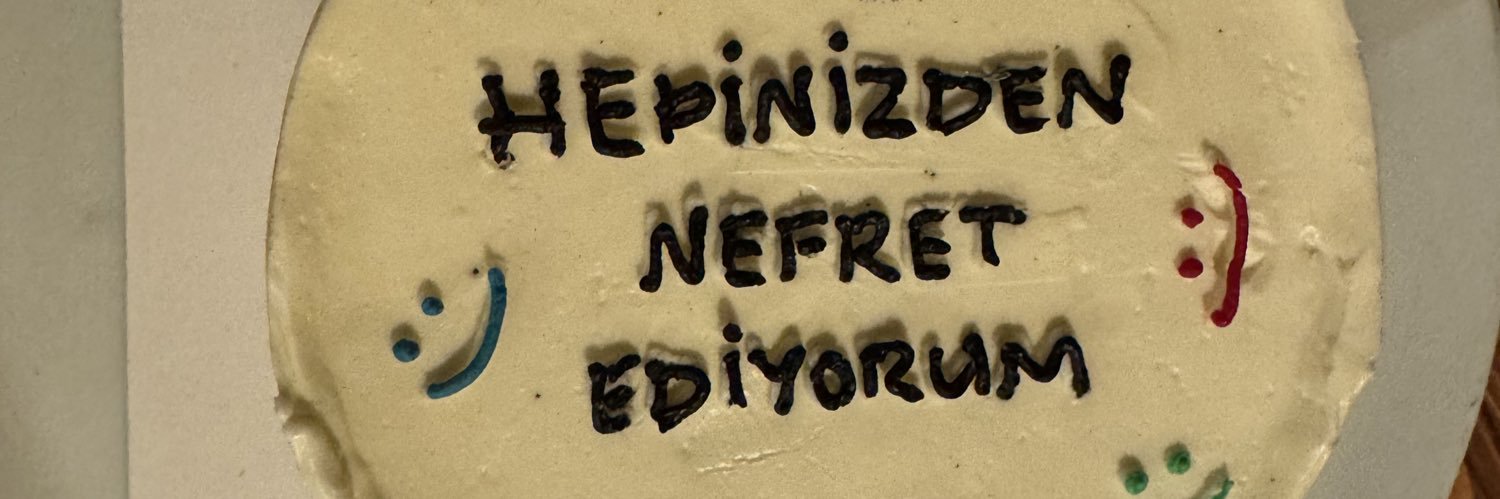 HEPİNİZDEN
NEFRET
EDİYORUM